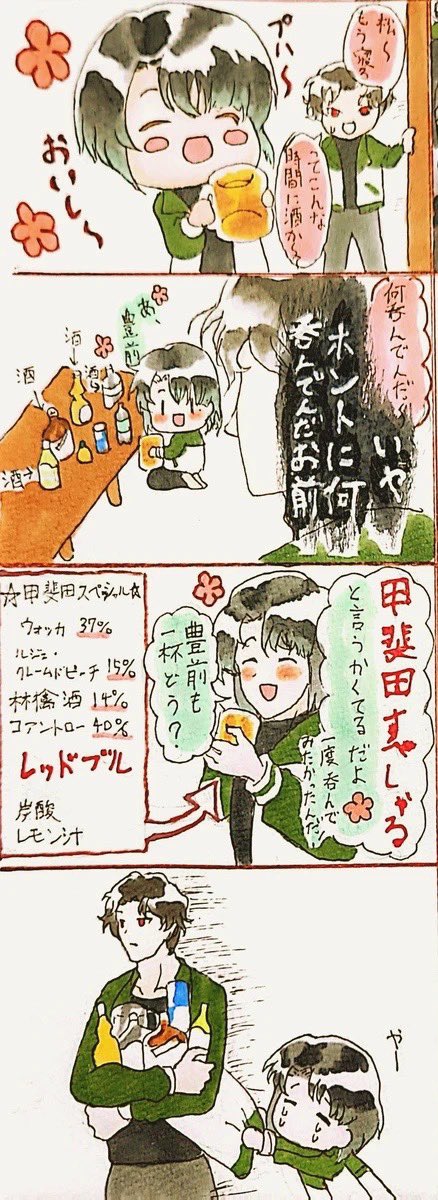 松〜
もう寝る
ってこんな
時間に酒か?
プハ〜
おいし〜
何呑んでんだ?
いや
ホントに何
呑んでんだお前
あ、
豊前
酒
酒
酒
酒
甲斐田すぺしゃる
と言うかくてるだよ
一度呑んで
みたかったんだ!
豊前も
一杯どう?
☆甲斐田スペシャル☆
ウォッカ 37%
ルジェ・
クレームドピーチ 15%
林檎酒 14%
コアントロー 40%
レッドブル
炭酸
レモン汁
やー